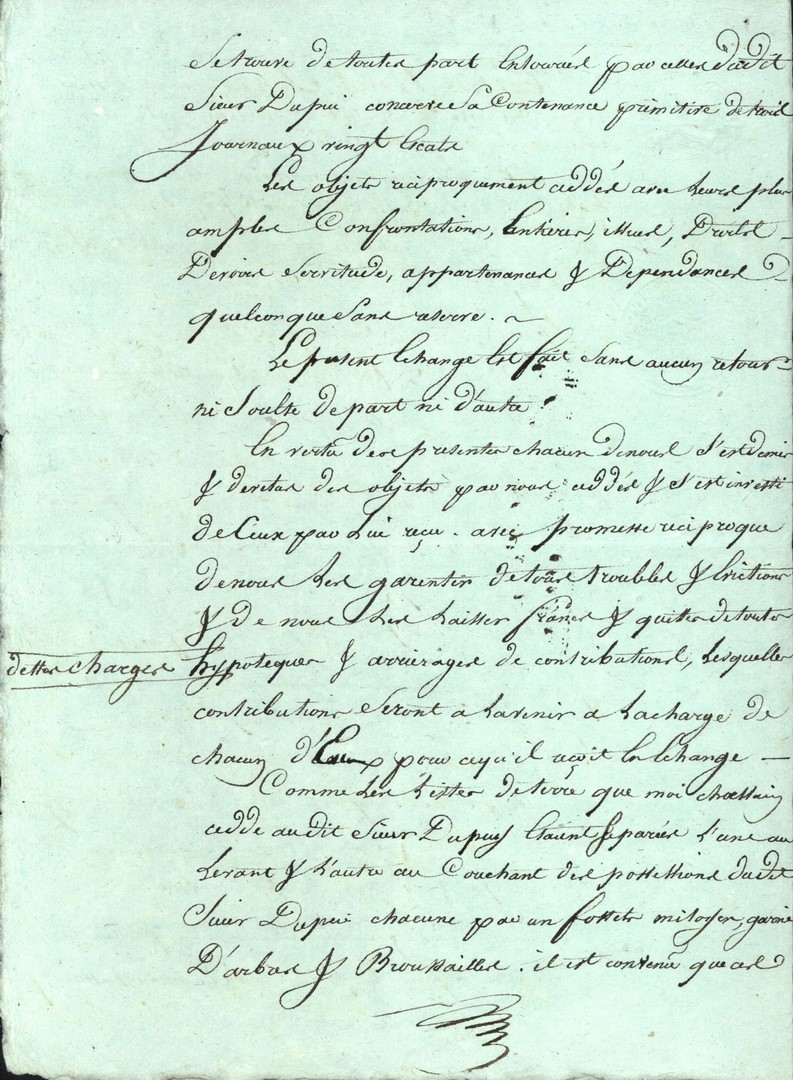 se trouve de toutes part Entourées par celles dudit
Sieur Dupui concerve sa Contenance primitive de trois
Journaux vingt Escats
Les objets reciproquement ceddés avec Leurs plus
amples Confrontations, Entrées, issues, Droits
Devoirs Servitude, appartenances & Dependances
quelconque sans reserve. ~
Le présent Echange Est fait sans aucun retour
ni Soulte de part ni d'autre
En vertu des presentes chacun de nous s'est demis
& devetus des objets par nous ceddés & s'est investi
de Ceux par Lui reçu. avec promesse reciproque
de nous Les garentir de tous troubles & Evictions
& de nous Les Laisser francs & quittes de toutes
dettes charges hypoteques & arrierages de contributions, Lesquelles
contributions Seront a Lavenir a Lacharge de
chacun d'Eux pour cequ'il reçoit En Echange —
Comme Les Listes de terre que moi chastaing
cedde au dit Sieur Dupuy Etaunt Separées L'une au
Levant & L'autre au Couchant des possessions dudit
Sieur Dupui chacune par un fossets mitoyen, garni
D'arbres & Broussailles. il est convenu que ces